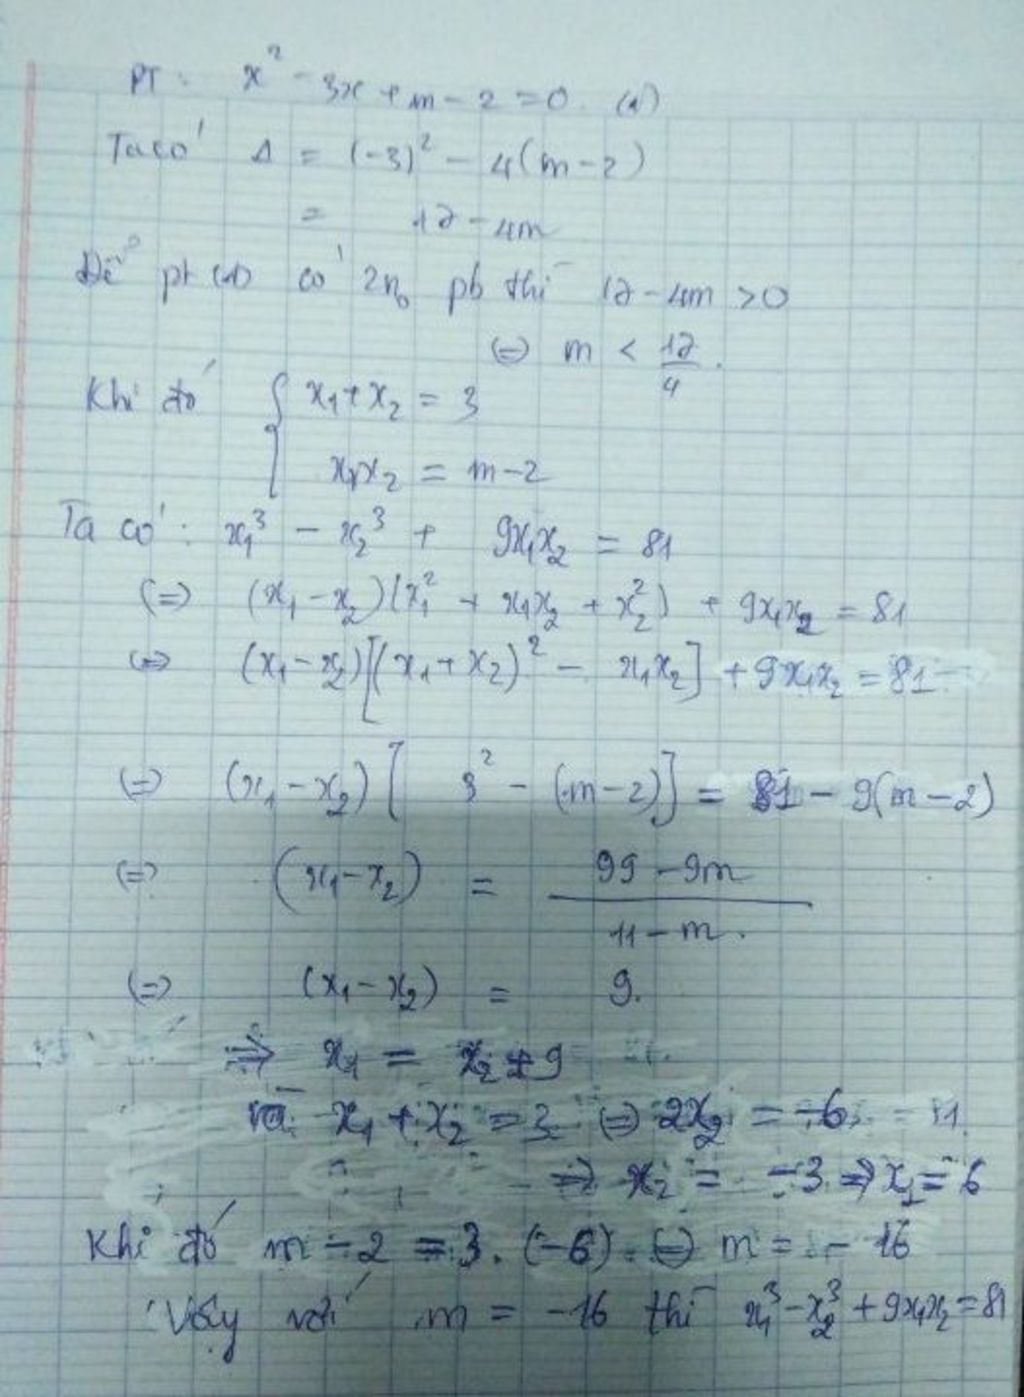 PT : x² - 3x + m - 2 = 0. (1)
Ta có Δ = (-3)² - 4(m - 2)
= 17 - 4m
Để pt (1) có 2n₀ pb thì 17 - 4m > 0
(=) m < 17/4.
Khi đó { x₁ + x₂ = 3
x₁x₂ = m - 2
Ta có : x₁³ - x₂³ + 9x₁x₂ = 81
(=) (x₁ - x₂)(x₁² + x₁x₂ + x₂²) + 9x₁x₂ = 81
(=) (x₁ - x₂)[(x₁ + x₂)² - x₁x₂] + 9x₁x₂ = 81
(=) (x₁ - x₂) [ 3² - (m - 2)] = 81 - 9(m - 2)
(=) (x₁ - x₂) = (99 - 9m)/(11 - m).
(=) (x₁ - x₂) = 9.
=> x₁ = x₂ + 9
và x₁ + x₂ = 3 (=) 2x₂ = -6
=> x₂ = -3 => x₁ = 6
Khi đó m - 2 = 3. (-6) (=) m = - 16
Vậy với m = -16 thì x₁³ - x₂³ + 9x₁x₂ = 81